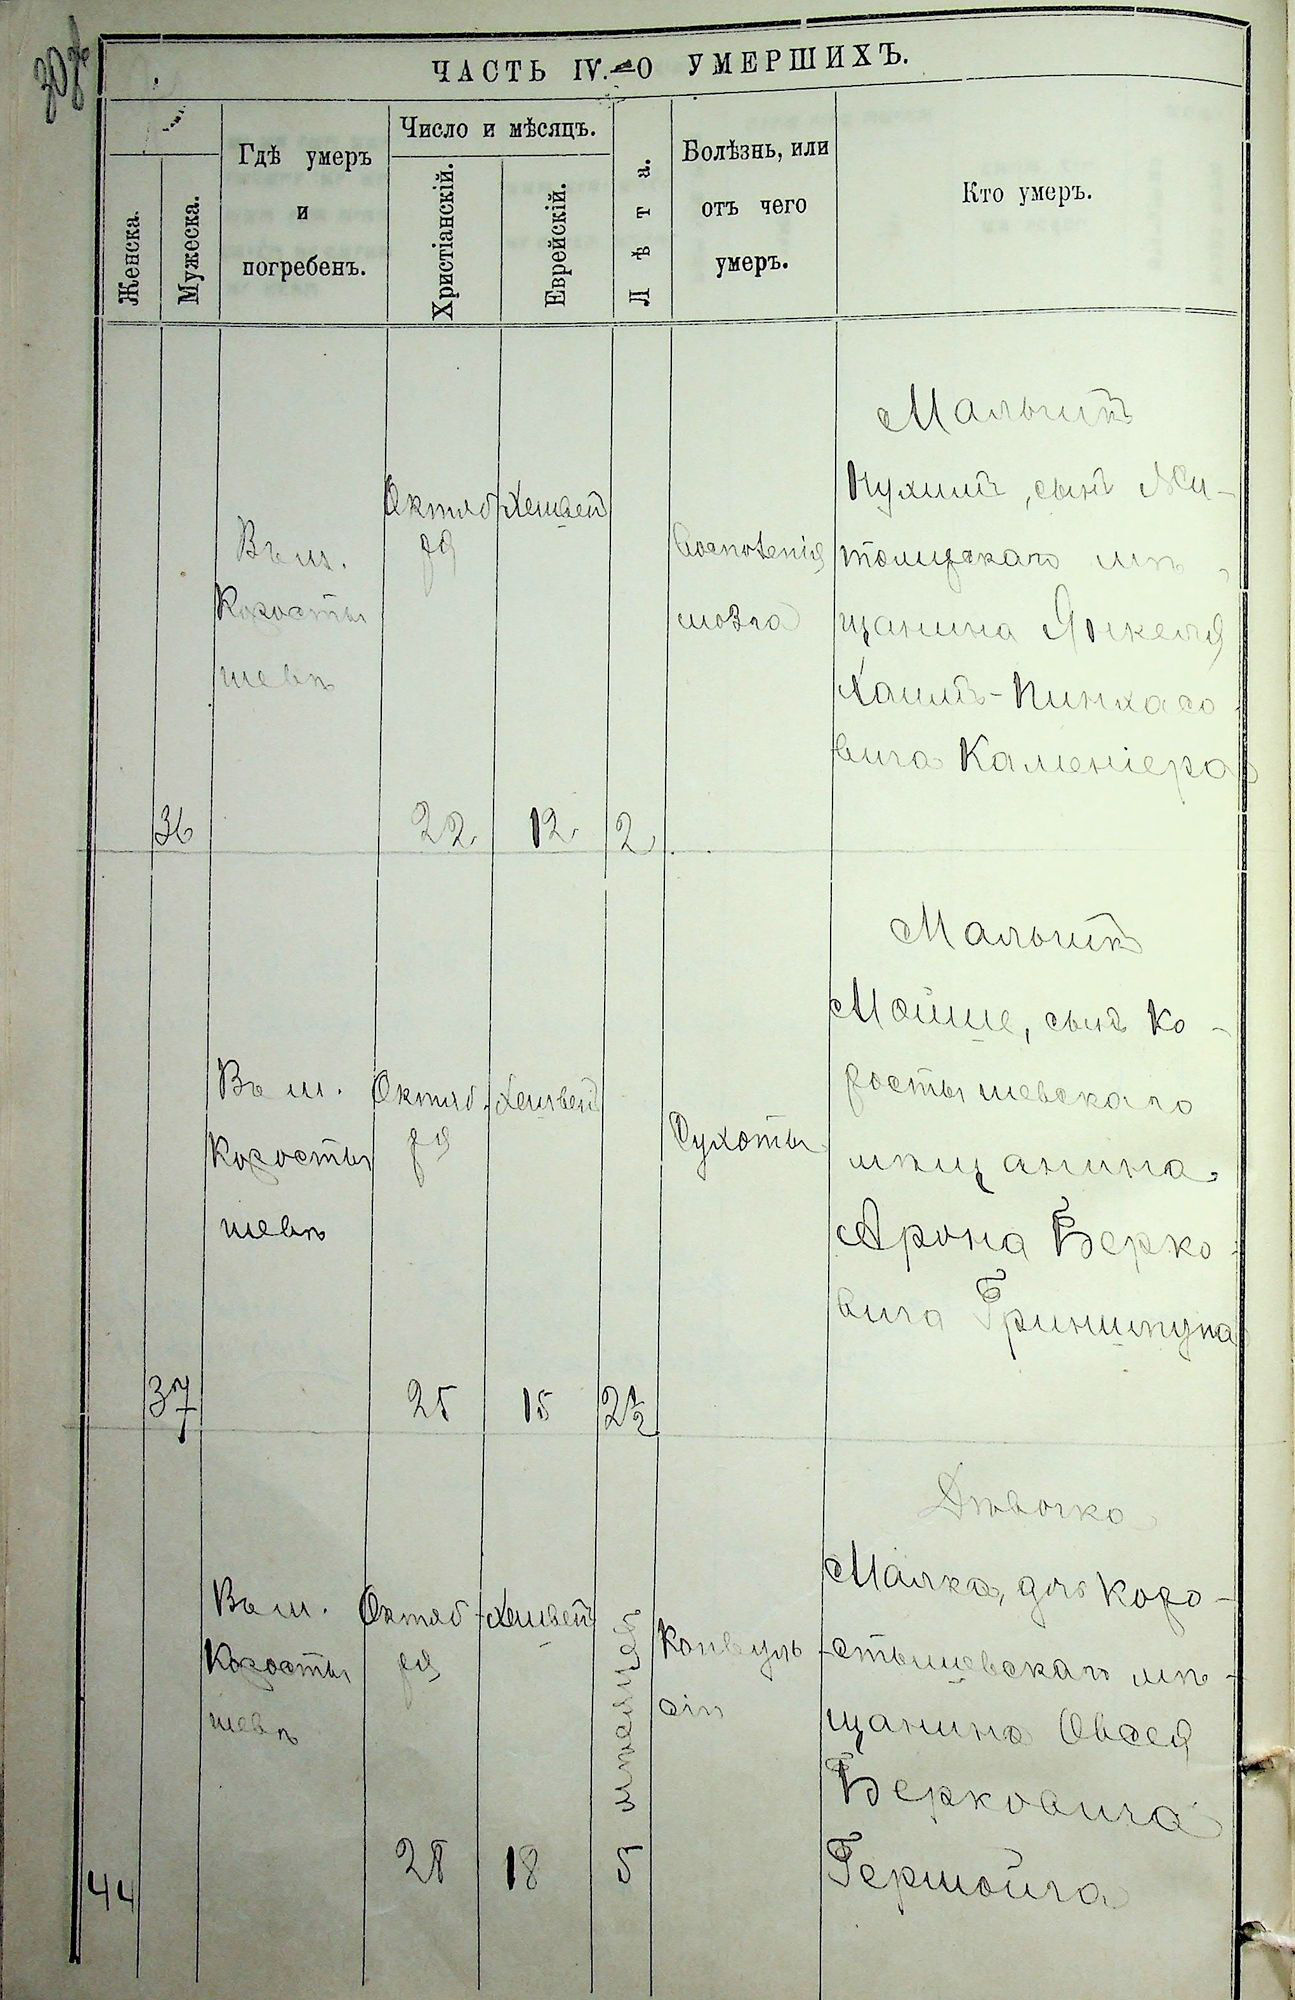 ЧАСТЬ IV.—О УМЕРШИХЪ.
Женска.
Мужеска.
Гдѣ умеръ
и
погребенъ.
Число и мѣсяцъ.
Христіанскій.
Еврейскій.
Лѣта.
Болѣзнь, или
отъ чего
умеръ.
Кто умеръ.
36
Въ м.
Коросты
шевѣ
Октяб
ря
22
Хешвен
12
2
Восполенія
мозга
Мальчикъ
Нухимъ, сынъ Жи-
томирскаго мѣ-
щанина Янкеля
Хаимъ-Пинхасо
вича
37
Въ м.
Коросты
шевѣ
Октяб.
ря
25
Хешвен
15
2½
Сухоты
Мальчикъ
Мойше, сынъ Ко-
ростышевскаго
мѣщанина
Арона Берко-
вича Гриншпуна
44
Въ м.
Коросты
шевѣ
Октяб
ря
28
Хешвен
18
5 мѣсяцевъ
Конвуль
сіи
Дѣвочка
Малка, дочь Коро-
стышевскаго мѣ-
щанина Овсея
Берковича